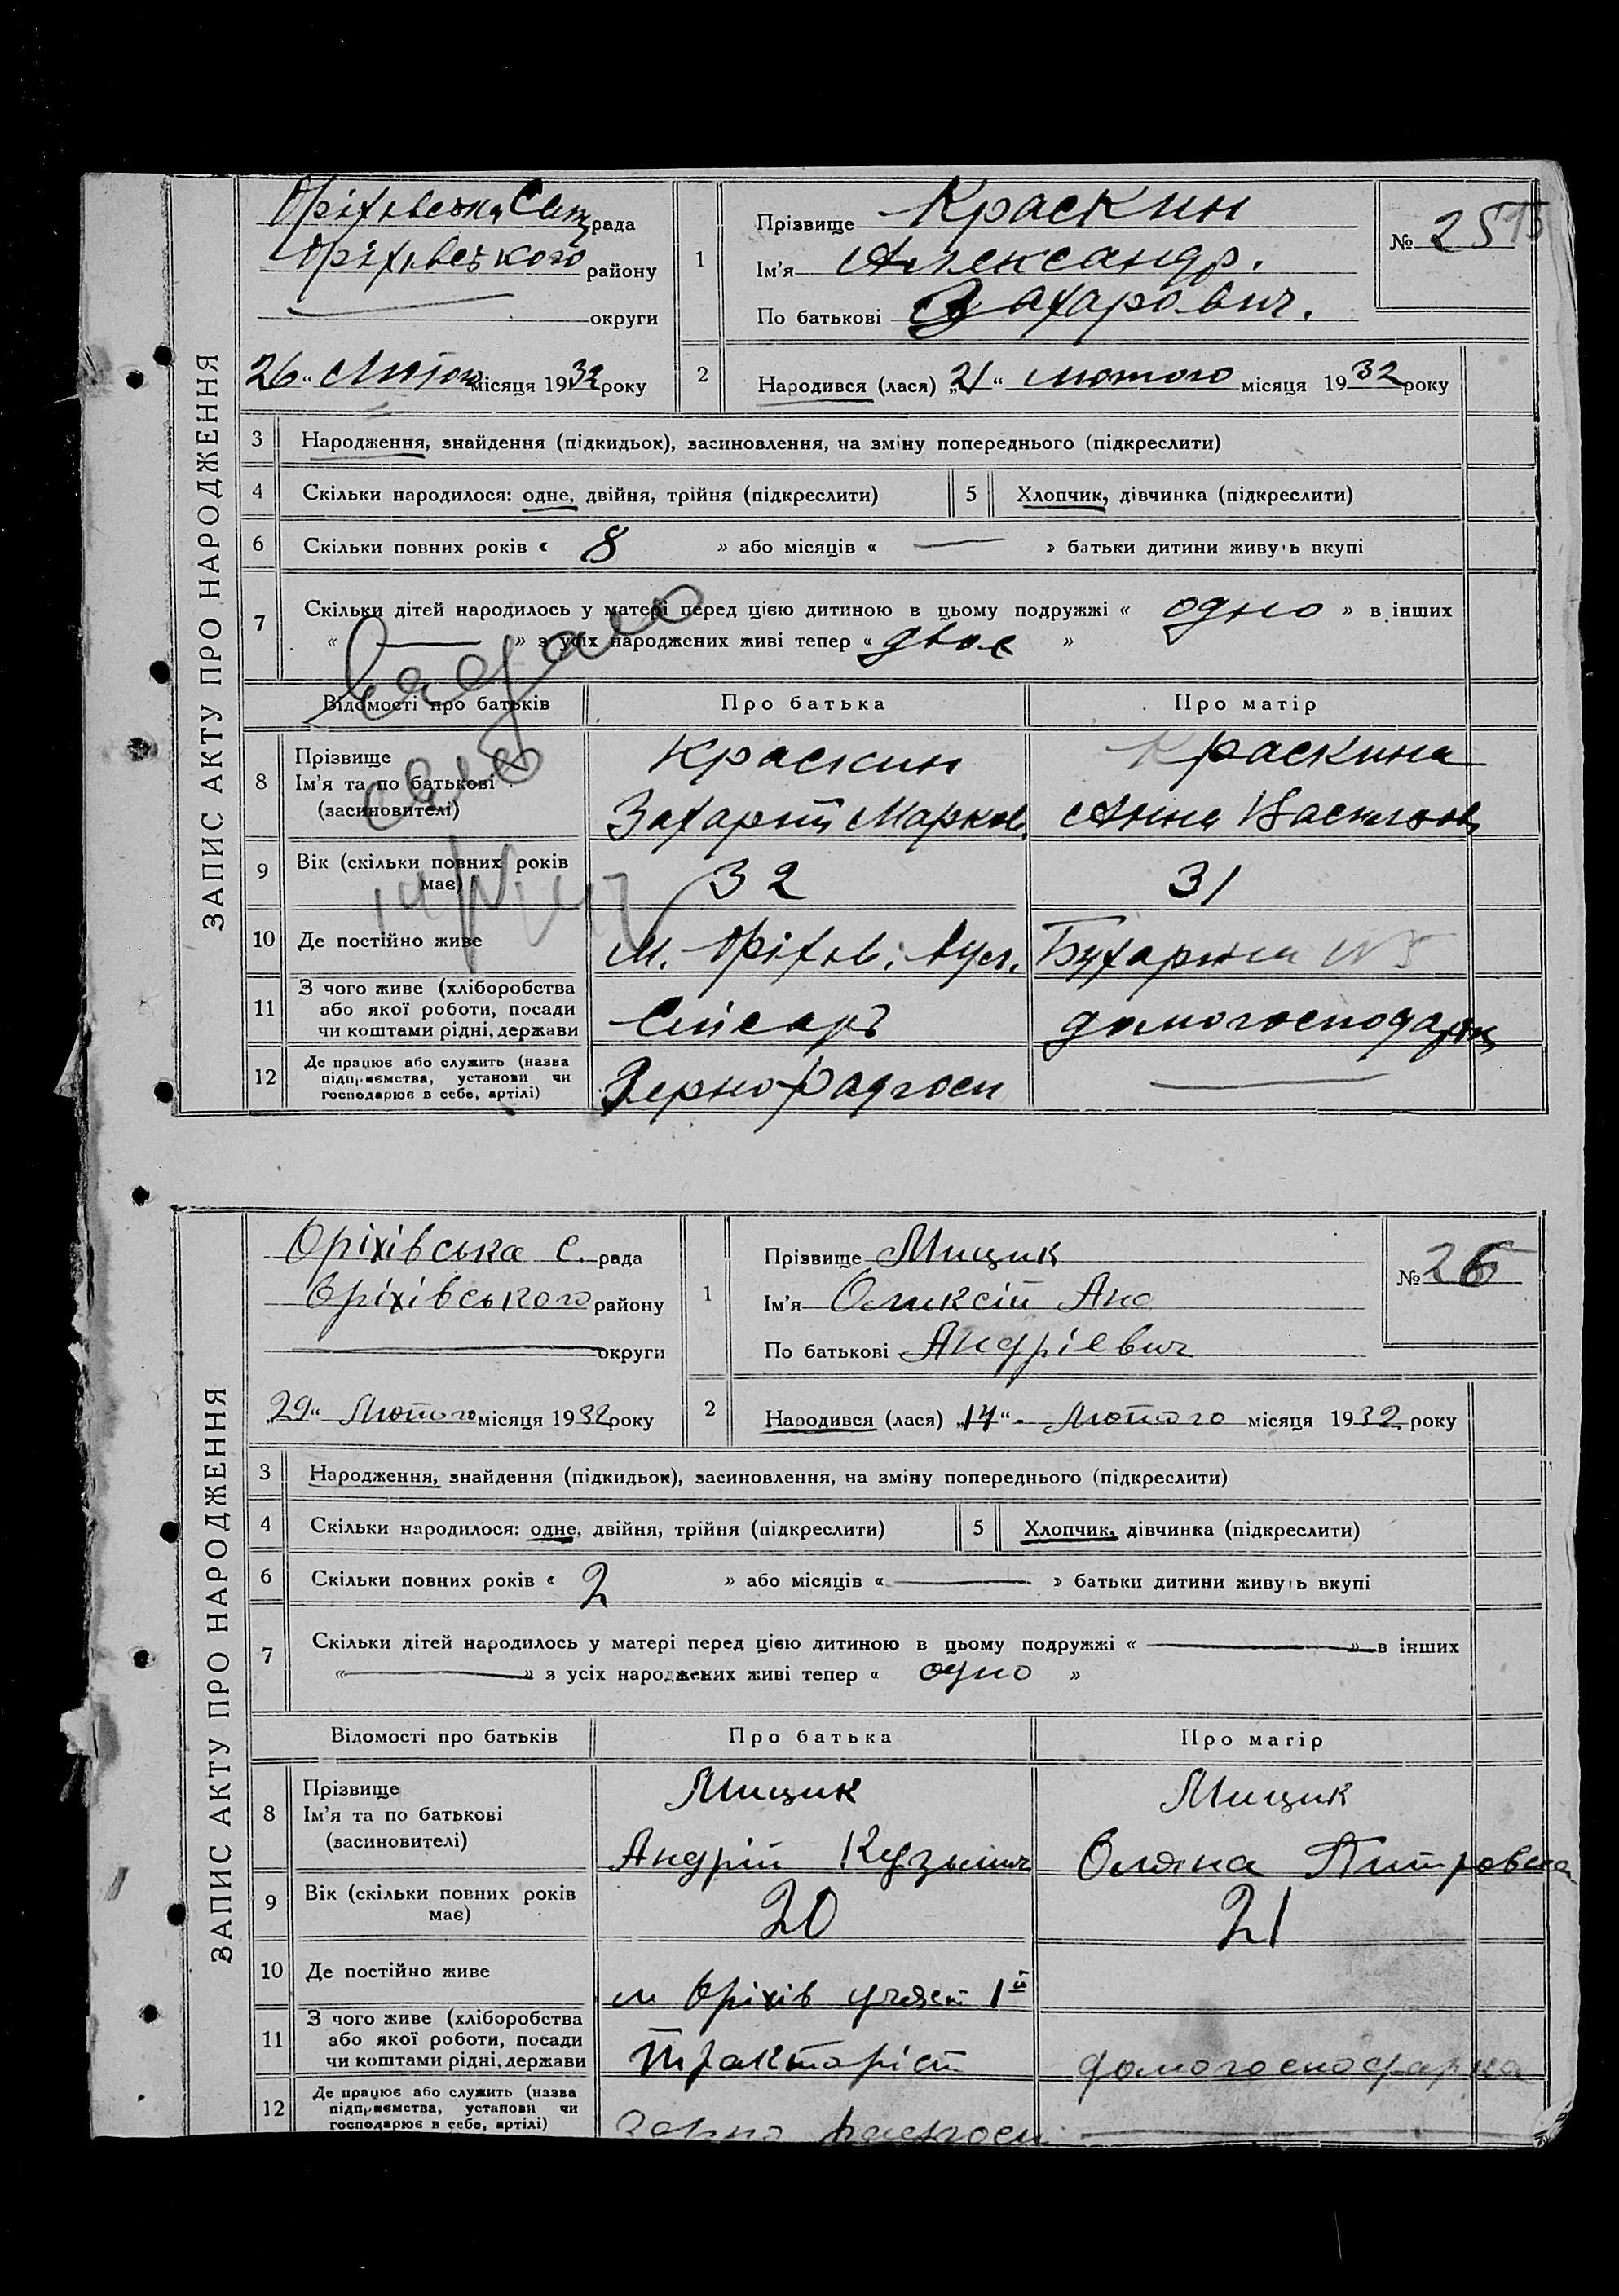 ЗАПИС АКТУ ПРО НАРОДЖЕННЯ
рада
Оріхівського району
округи
1
Прізвище Краскин
Ім'я Александр.
По батькові Захарович.
№ 25
26 “ місяця 1932 року
2
Народився (лася) „21“ лютого місяця 1932 року
3 Народження, знайдення (підкидьок), засиновлення, на зміну попереднього (підкреслити)
4 Скільки народилося: одне, двійня, трійня (підкреслити)
5 Хлопчик, дівчинка (підкреслити)
6 Скільки повних років « 8 » або місяців « — » батьки дитини живуть вкупі
7 Скільки дітей народилось у матері перед цією дитиною в цьому подружжі « одно » в інших
« — » з усіх народжених живі тепер « двое »
Відомості про батьків
Про батька
Про матір
8 Прізвище
Ім'я та по батькові
(засиновителі)
Краскин
Захарий Марков.
Краскина
Анна
9 Вік (скільки повних років
має)
32
31
10 Де постійно живе
м. Оріхів. вул. Бухарина № 5
11 З чого живе (хліборобства
або якої роботи, посади
чи коштами рідні, держави
Слісарь
домогосподарка
12 Де працює або служить (назва
підприємства, установи чи
господарює в себе, артілі)
Зерно радгосп
—
ЗАПИС АКТУ ПРО НАРОДЖЕННЯ
Оріхівська С. рада
Оріхівського району
округи
1
Прізвище Мицик
Ім'я Оликсій
По батькові Андріевич
№ 26
„29“ Лютого місяця 1932 року
2
Народився (лася) „14“ Лютого місяця 1932 року
3 Народження, знайдення (підкидьок), засиновлення, на зміну попереднього (підкреслити)
4 Скільки народилося: одне, двійня, трійня (підкреслити)
5 Хлопчик, дівчинка (підкреслити)
6 Скільки повних років « 2 » або місяців « — » батьки дитини живуть вкупі
7 Скільки дітей народилось у матері перед цією дитиною в цьому подружжі « — » в інших
« — » з усіх народжених живі тепер « одно »
Відомості про батьків
Про батька
Про матір
8 Прізвище
Ім'я та по батькові
(засиновителі)
Мицик
Андрій Кузьмич
Мицик
Оляна Питровна
9 Вік (скільки повних років
має)
20
21
10 Де постійно живе
м Оріхів 1й
11 З чого живе (хліборобства
або якої роботи, посади
чи коштами рідні, держави
Тракторіст
домогосподарка
12 Де працює або служить (назва
підприємства, установи чи
господарює в себе, артілі)
Зерно радгосп
—